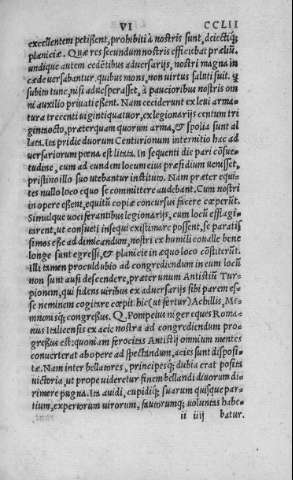 VI CCLII
excellentem petissent, prohibiti à nostris sunt, deiectiq́;
planicie. Quæ res secundum nostris efficiebat prælium.
undique autem cedentibus aduersarijs, nostri magna in
cæde uersabantur. quibus mons, non uirtus saluti fuit. q
subsidio tunc, nisi aduesperasset, à paucioribus nostris om
ni auxilio priuati essent. Nam ceciderunt ex leui arma=
tura trecenti uigintiquatuor, ex legionarijs centum tri
gintaocto, præterquam quorum arma, & spolia sunt al
lata. Ita pridie duorum Centurionum internitio hac ad
uersariorum pœna est litata. In sequenti die pari cōsue=
tudine, cum ad eundem locum eius præsidium uenisset,
pristino illo suo utebantur instituto. Nam præter equi=
tes nullo loco equo se committere audebant. Cum nostri
in opere essent, equitū copiæ concursus facere cœperūt.
Simulque uociferantibus legionarijs, cum locū efflagi=
tarent, ut consueti insequi existimare possent, se paratis
simos esse ad dimicandum, nostri ex humili conualle bene
longe sunt egressi, & planicie in æquo loco cōstiterūt.
Illi tamen proculdubio ad congrediendum in eum locū
non sunt ausi descendere, præter unum Antistiū Tur=
pionem, qui fidens uiribus ex aduersarijs sibi parem es=
se neminem cogitare cœpit. hic (ut fertur) Achillis, Me=
mnonisq́; congressus. Q. Pompeius niger eques Roma=
nus Italicensis ex acie nostra ad congrediendum pro=
gressus est: quoniam ferocitas Antistij omnium mentes
conuerterat ab opere ad spectandum, acies sunt disposi=
tæ. Nam inter bellatores, principesq́; dubia erat posita
uictoria, ut prope uideretur finem bellandi duorum di=
rimere pugna. Ita auidi, cupidiq́; suarum quisque par=
tium, expertorum uirorum, fautorumq́; uoluntas habe=
ii iiij batur.